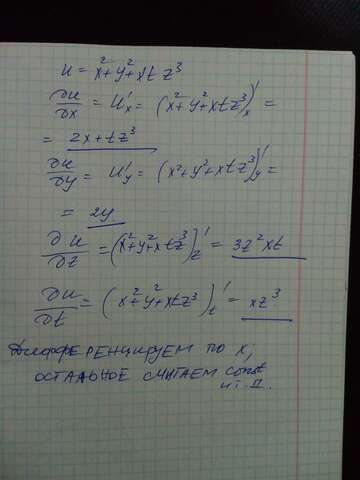 u = x² + y² + xtz³
∂u/∂x = u'ₓ = (x² + y² + xtz³)'ₓ =
= 2x + tz³
∂u/∂y = u'ᵧ = (x² + y² + xtz³)'ᵧ =
= 2y
∂u/∂z = (x² + y² + xtz³)'_z = 3z²xt
∂u/∂t = (x² + y² + xtz³)'_t = xz³
Дифференцируем по x,
остальное считаем const
и т.п.